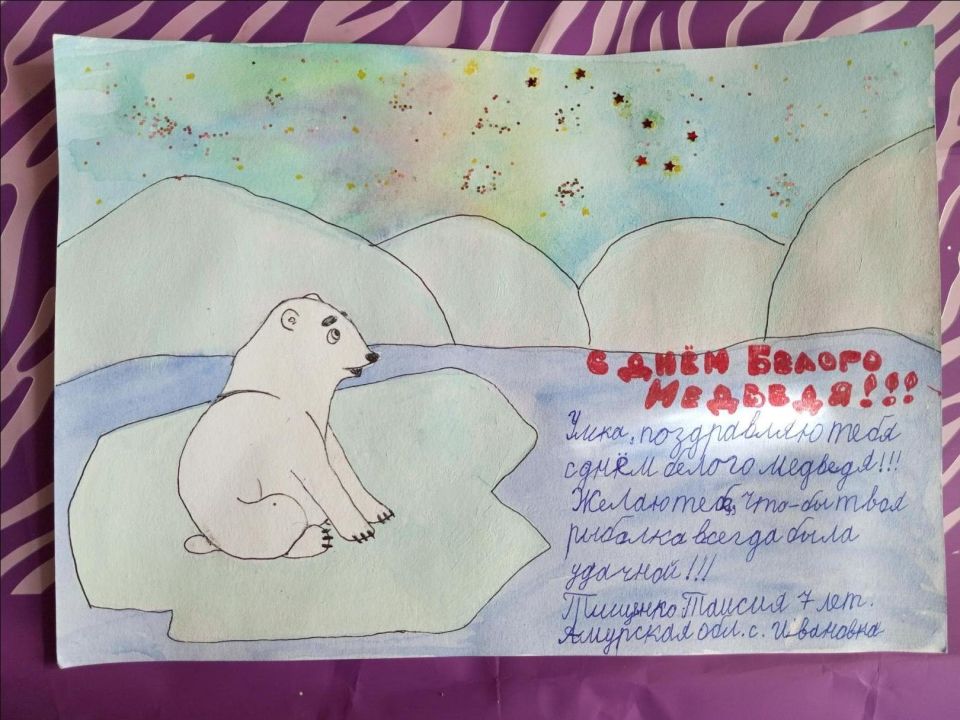 С ДНЁМ БЕЛОГО
МЕДВЕДЯ!!!
Умка, поздравляю тебя
с днём белого медведя!!!
Желаю тебе, что-бы твоя
рыбалка всегда была
удачной!!!
Тищенко Таисия 7 лет.
Амурская обл. с. Ивановка